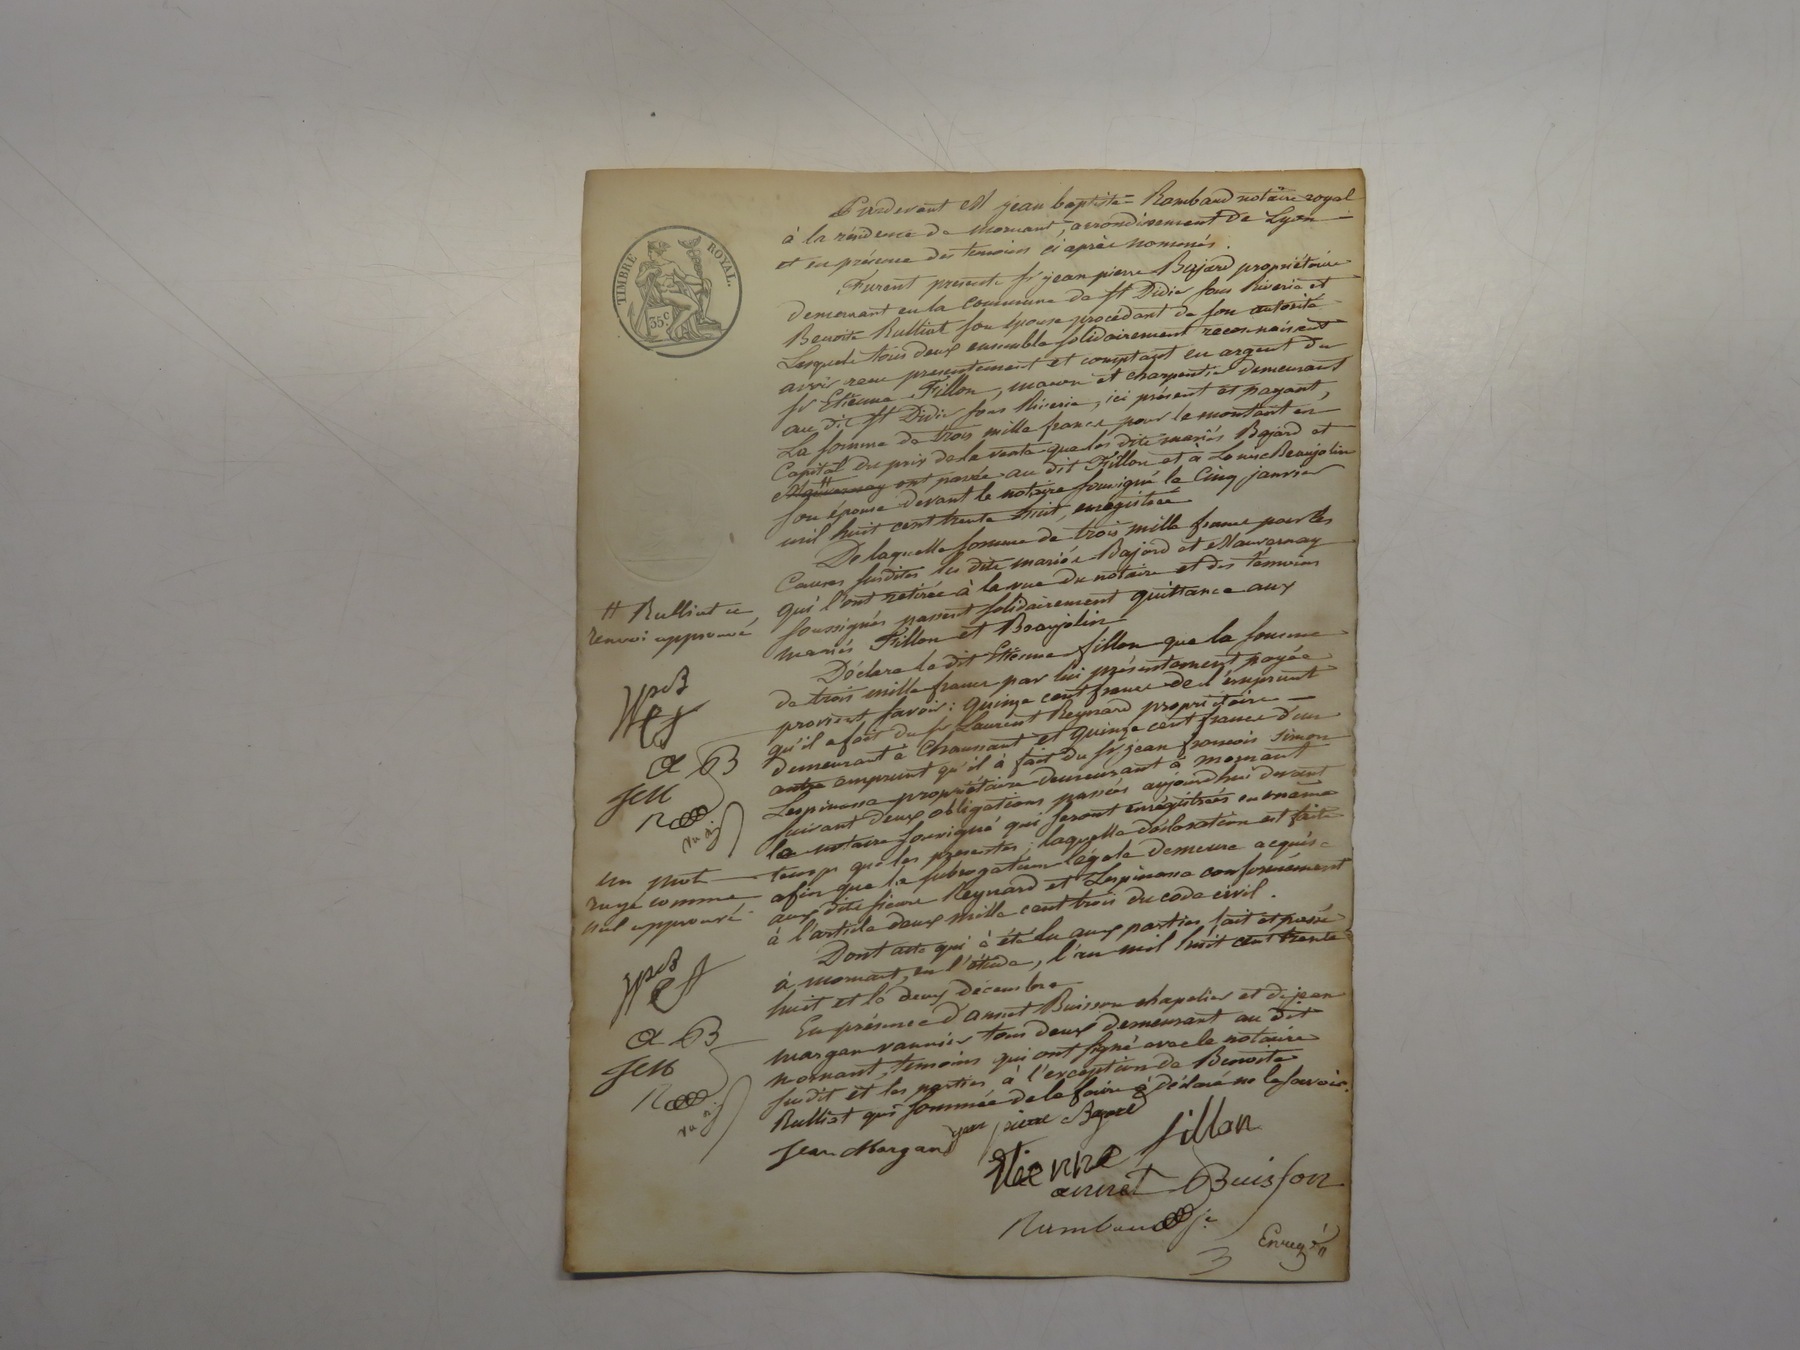 TIMBRE ROYAL.
35 c.
Pardevant Me jean baptiste Rambaud notaire royal
à la résidence de Mornant, arrondissement de Lyon
et en présence des témoins ci après nommés.
Furent présents sr jean pierre Bajard propriétaire
demeurant en la commune de st Didier sous Riverie et
Benoite Rulliat son épouse procédant de son autorité
Lesquels tous deux ensemble solidairement reconnaissent
avoir reçu presentement et comptant en argent du
sr Etienne Fillon, maçon et charpentier demeurant
au dit st Didier sous Riverie, ici présent et payant,
La somme de trois mille francs pour le montant en
Capital du prix de la vente que les dits mariés Bajard et
Mauvernay ont passée au dit Fillon et à Louise Beaujolin
son épouse devant le notaire soussigné le Cinq janvier
mil huit cent trente huit, enregistrée
De laquelle somme de trois mille francs pour les
Causes susdites les dits mariés Bajard et Mauvernay
qui l'ont retirée à la vue du notaire et des témoins
soussignés passent solidairement quittance aux
mariés Fillon et Beaujolin
Déclare le dit Etienne fillon que la somme
de trois mille francs par lui présentement payée
provient savoir: quinze cent francs de l'emprunt
qu'il a fait du sr Laurent Reynard propriétaire
demeurant à Chaussant et quinze cent francs d'un
autre emprunt qu'il à fait du sr jean françois Simon
Lespinasse propriétaire demeurant à mornant
suivant deux obligations passées aujourd'hui devant
le notaire soussigné qui seront enregistrées en même
temps que les présentes; laquelle déclaration est faite
afin que la subrogation légale demeure acquise
aux dits sieurs Reynard et Lespinasse conformément
à l'article deux mille cent trois du code civil.
Dont acte qui à été lu aux parties fait et passé
à mornant, en l'étude, l'an mil huit cent trente
huit et le deux décembre
En présence d'annet Buisson chapelier et de jean
margan vannier tous deux demeurant au dit
mornant, témoins qui ont signé avec le notaire
susdit et les parties à l'exception de Benoite
Rulliat qui sommée de le faire à déclaré ne le savoir.
Jean Margand jean pierre Bajard
Etienne fillon
annet Buisson
Rambaud
Enreg.
3
# Rulliat ce
renvoi approuvé
JPB
E f
a B
JM
R
un mot
rayé comme
nul approuvé
JPB
E f
a B
JM
R